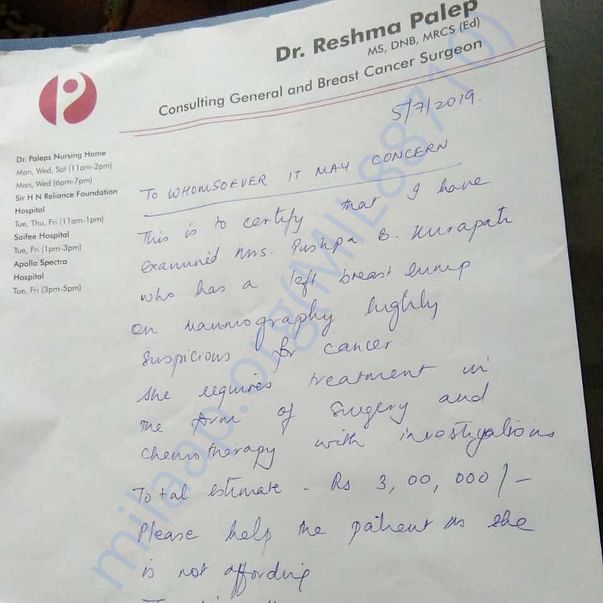 Dr. Reshma Palep
MS, DNB, MRCS (Ed)
Consulting General and Breast Cancer Surgeon
Dr. Paleps Nursing Home
Mon, Wed, Sat (11am-2pm)
Mon, Wed (6pm-7pm)
Sir H N Reliance Foundation
Hospital
Tue, Thu, Fri (11am-1pm)
Saifee Hospital
Tue, Fri (1pm-3pm)
Apollo Spectra
Hospital
Tue, Fri (3pm-5pm)
5/7/2019.
TO WHOMSOEVER IT MAY CONCERN
This is to certify that I have
examined Mrs. Pushpa B. Kurapati
who has a left breast lump
on mammography highly
suspicious for cancer.
She requires treatment in
the form of surgery and
chemotherapy with investigations
Total estimate - Rs 3,00,000/-
Please help the patient as she
is not affording
milaap.org/(MIL88710)